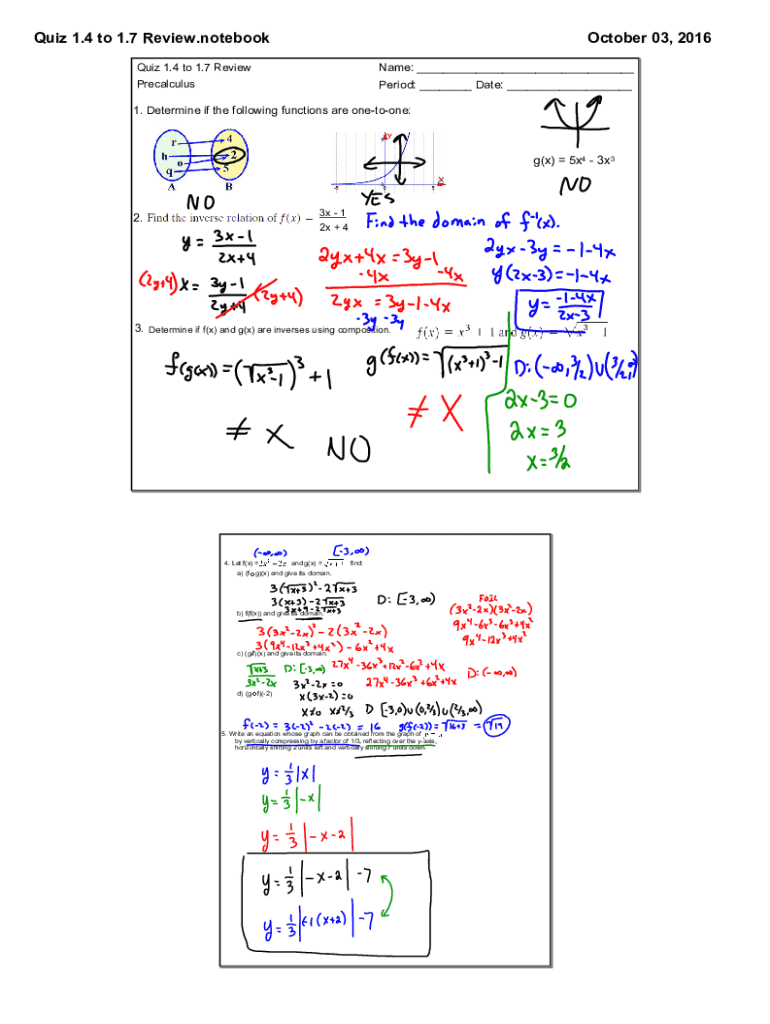 Quiz 1.4 to 1.7 Review.notebook
October 03, 2016
Quiz 1.4 to 1.7 Review
Name:
Precalculus
Period: Date:
1. Determine if the following functions are one-to-one:
r 4
h 2
o
q 5
A B
y
x
g(x) = 5x⁴ - 3x³
NO
YES
NO
2. Find the inverse relation of f(x) = (3x - 1)/(2x + 4)
Find the domain of f⁻¹(x).
y = (3x-1)/(2x+4)
(2y+4) x = (3y-1)/(2y+4) (2y+4)
2yx+4x = 3y-1
-4x -4x
2yx = 3y-1-4x
-3y -3y
2yx-3y = -1-4x
y(2x-3) = -1-4x
y = (-1-4x)/(2x-3)
3. Determine if f(x) and g(x) are inverses using composition.
f(x) = x³ + 1 and g(x) = √x³ 1
f(g(x)) = (√x³-1)³ + 1
≠ x
NO
g(f(x)) = √(x³+1)³-1
≠ x
D: (-∞, 3/2) ∪ (3/2, ∞)
2x-3=0
2x = 3
x = 3/2
(-∞,∞) [-3,∞)
4. Let f(x) = 3x² - 2x and g(x) = find:
a) (f∘g)(x) and give its domain.
3(√x+3)² - 2√x+3
3(x+3) - 2√x+3
3x+9 - 2√x+3
D: [-3,∞)
b) f(f(x)) and give its domain.
3(3x²-2x)² - 2(3x²-2x)
3(9x⁴-12x³+4x²) - 6x²+4x
27x⁴-36x³+12x²-6x²+4x
27x⁴-36x³+6x²+4x
D: (-∞,∞)
FOIL
(3x²-2x)(3x²-2x)
9x⁴-6x³-6x³+4x²
9x⁴-12x³+4x²
c) (g/f)(x) and give its domain.
√x+3/(3x²-2x)
D: [-3,∞)
3x²-2x=0
x(3x-2)=0
x≠0 x≠2/3
D [-3,0)∪(0,2/3)∪(2/3,∞)
d) (g∘f)(-2)
f(-2) = 3(-2)² - 2(-2) = 16
g(f(-2)) = √16+3 = √19
5. Write an equation whose graph can be obtained from the graph of
by vertically compressing by a factor of 1/3, reflecting over the y-axis,
horizontally shifting 2 units left and vertically shifting 7 units down.
y = 1/3 |x|
y = 1/3 |-x|
y = 1/3 |-x-2|
y = 1/3 |-x-2| -7
y = 1/3 |-1(x+2)| -7